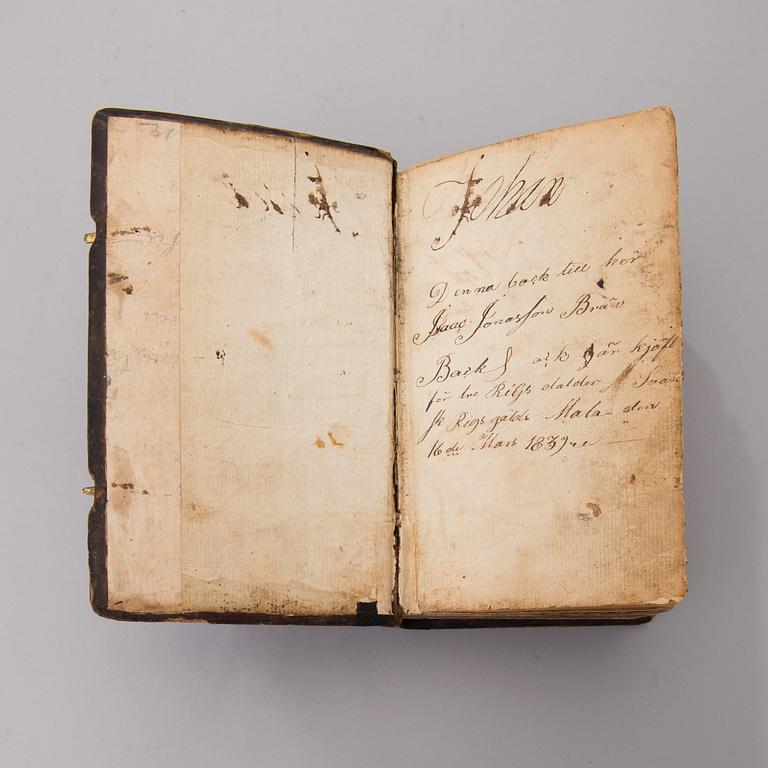 Johan
Denna bock till hör
Isaac Jonasson Brän
Back och är kjöft
för tre Rigs dalder
Rigs gälds Mala den
16 de Mars 1839